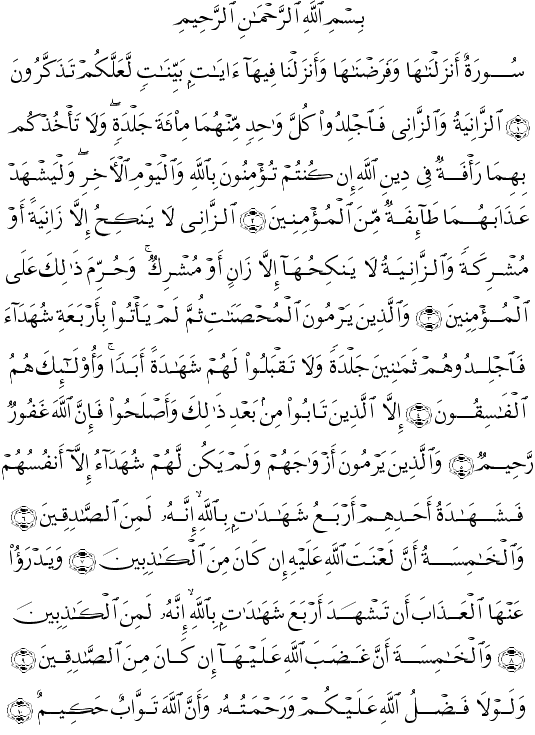 بِسْمِ ٱللَّهِ ٱلرَّحْمَـٰنِ ٱلرَّحِيمِ
سُورَةٌ أَنزَلْنَـٰهَا وَفَرَضْنَـٰهَا وَأَنزَلْنَا فِيهَآ ءَايَـٰتٍۭ بَيِّنَـٰتٍ لَّعَلَّكُمْ تَذَكَّرُونَ
١ ٱلزَّانِيَةُ وَٱلزَّانِى فَٱجْلِدُوا۟ كُلَّ وَٰحِدٍ مِّنْهُمَا مِا۟ئَةَ جَلْدَةٍ ۖ وَلَا تَأْخُذْكُم
بِهِمَا رَأْفَةٌ فِى دِينِ ٱللَّهِ إِن كُنتُمْ تُؤْمِنُونَ بِٱللَّهِ وَٱلْيَوْمِ ٱلْـَٔاخِرِ ۖ وَلْيَشْهَدْ
عَذَابَهُمَا طَآئِفَةٌ مِّنَ ٱلْمُؤْمِنِينَ ٢ ٱلزَّانِى لَا يَنكِحُ إِلَّا زَانِيَةً أَوْ
مُشْرِكَةً وَٱلزَّانِيَةُ لَا يَنكِحُهَآ إِلَّا زَانٍ أَوْ مُشْرِكٌ ۚ وَحُرِّمَ ذَٰلِكَ عَلَى
ٱلْمُؤْمِنِينَ ٣ وَٱلَّذِينَ يَرْمُونَ ٱلْمُحْصَنَـٰتِ ثُمَّ لَمْ يَأْتُوا۟ بِأَرْبَعَةِ شُهَدَآءَ
فَٱجْلِدُوهُمْ ثَمَـٰنِينَ جَلْدَةً وَلَا تَقْبَلُوا۟ لَهُمْ شَهَـٰدَةً أَبَدًا ۚ وَأُو۟لَـٰٓئِكَ هُمُ
ٱلْفَـٰسِقُونَ ٤ إِلَّا ٱلَّذِينَ تَابُوا۟ مِنۢ بَعْدِ ذَٰلِكَ وَأَصْلَحُوا۟ فَإِنَّ ٱللَّهَ غَفُورٌ
رَّحِيمٌ ٥ وَٱلَّذِينَ يَرْمُونَ أَزْوَٰجَهُمْ وَلَمْ يَكُن لَّهُمْ شُهَدَآءُ إِلَّآ أَنفُسُهُمْ
فَشَهَـٰدَةُ أَحَدِهِمْ أَرْبَعُ شَهَـٰدَٰتٍۭ بِٱللَّهِ ۙ إِنَّهُۥ لَمِنَ ٱلصَّـٰدِقِينَ ٦
وَٱلْخَـٰمِسَةُ أَنَّ لَعْنَتَ ٱللَّهِ عَلَيْهِ إِن كَانَ مِنَ ٱلْكَـٰذِبِينَ ٧ وَيَدْرَؤُا۟
عَنْهَا ٱلْعَذَابَ أَن تَشْهَدَ أَرْبَعَ شَهَـٰدَٰتٍۭ بِٱللَّهِ ۙ إِنَّهُۥ لَمِنَ ٱلْكَـٰذِبِينَ
٨ وَٱلْخَـٰمِسَةَ أَنَّ غَضَبَ ٱللَّهِ عَلَيْهَآ إِن كَانَ مِنَ ٱلصَّـٰدِقِينَ ٩
وَلَوْلَا فَضْلُ ٱللَّهِ عَلَيْكُمْ وَرَحْمَتُهُۥ وَأَنَّ ٱللَّهَ تَوَّابٌ حَكِيمٌ ١٠